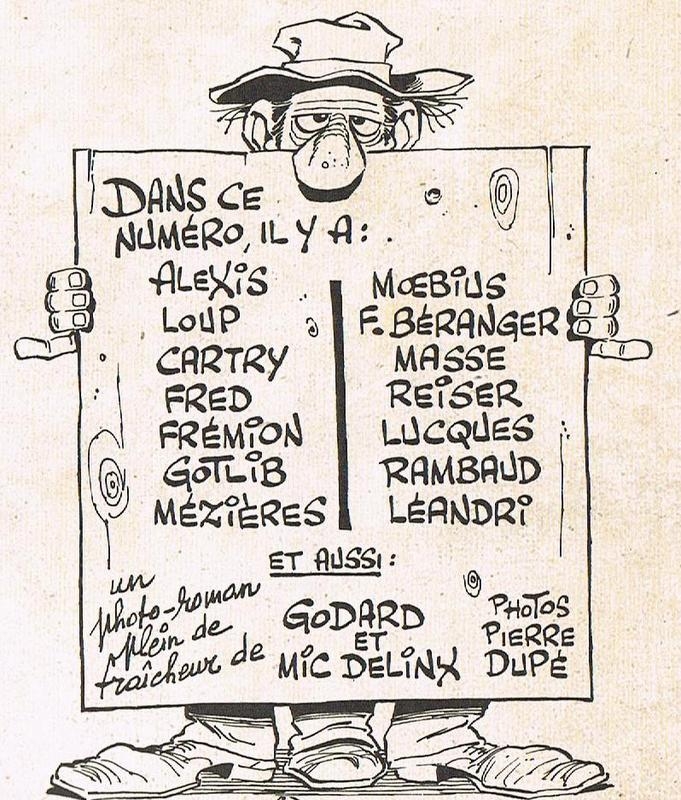 DANS CE
NUMÉRO, IL Y A :
ALEXIS
LOUP
CARTRY
FRED
FRÉMION
GOTLIB
MÉZIÈRES
MŒBIUS
F. BÉRANGER
MASSE
REISER
LUCQUES
RAMBAUD
LÉANDRI
ET AUSSI :
un
photo-roman
plein de
fraîcheur de
GODARD
ET
MIC DELINX
PHOTOS
PIERRE
DUPÉ